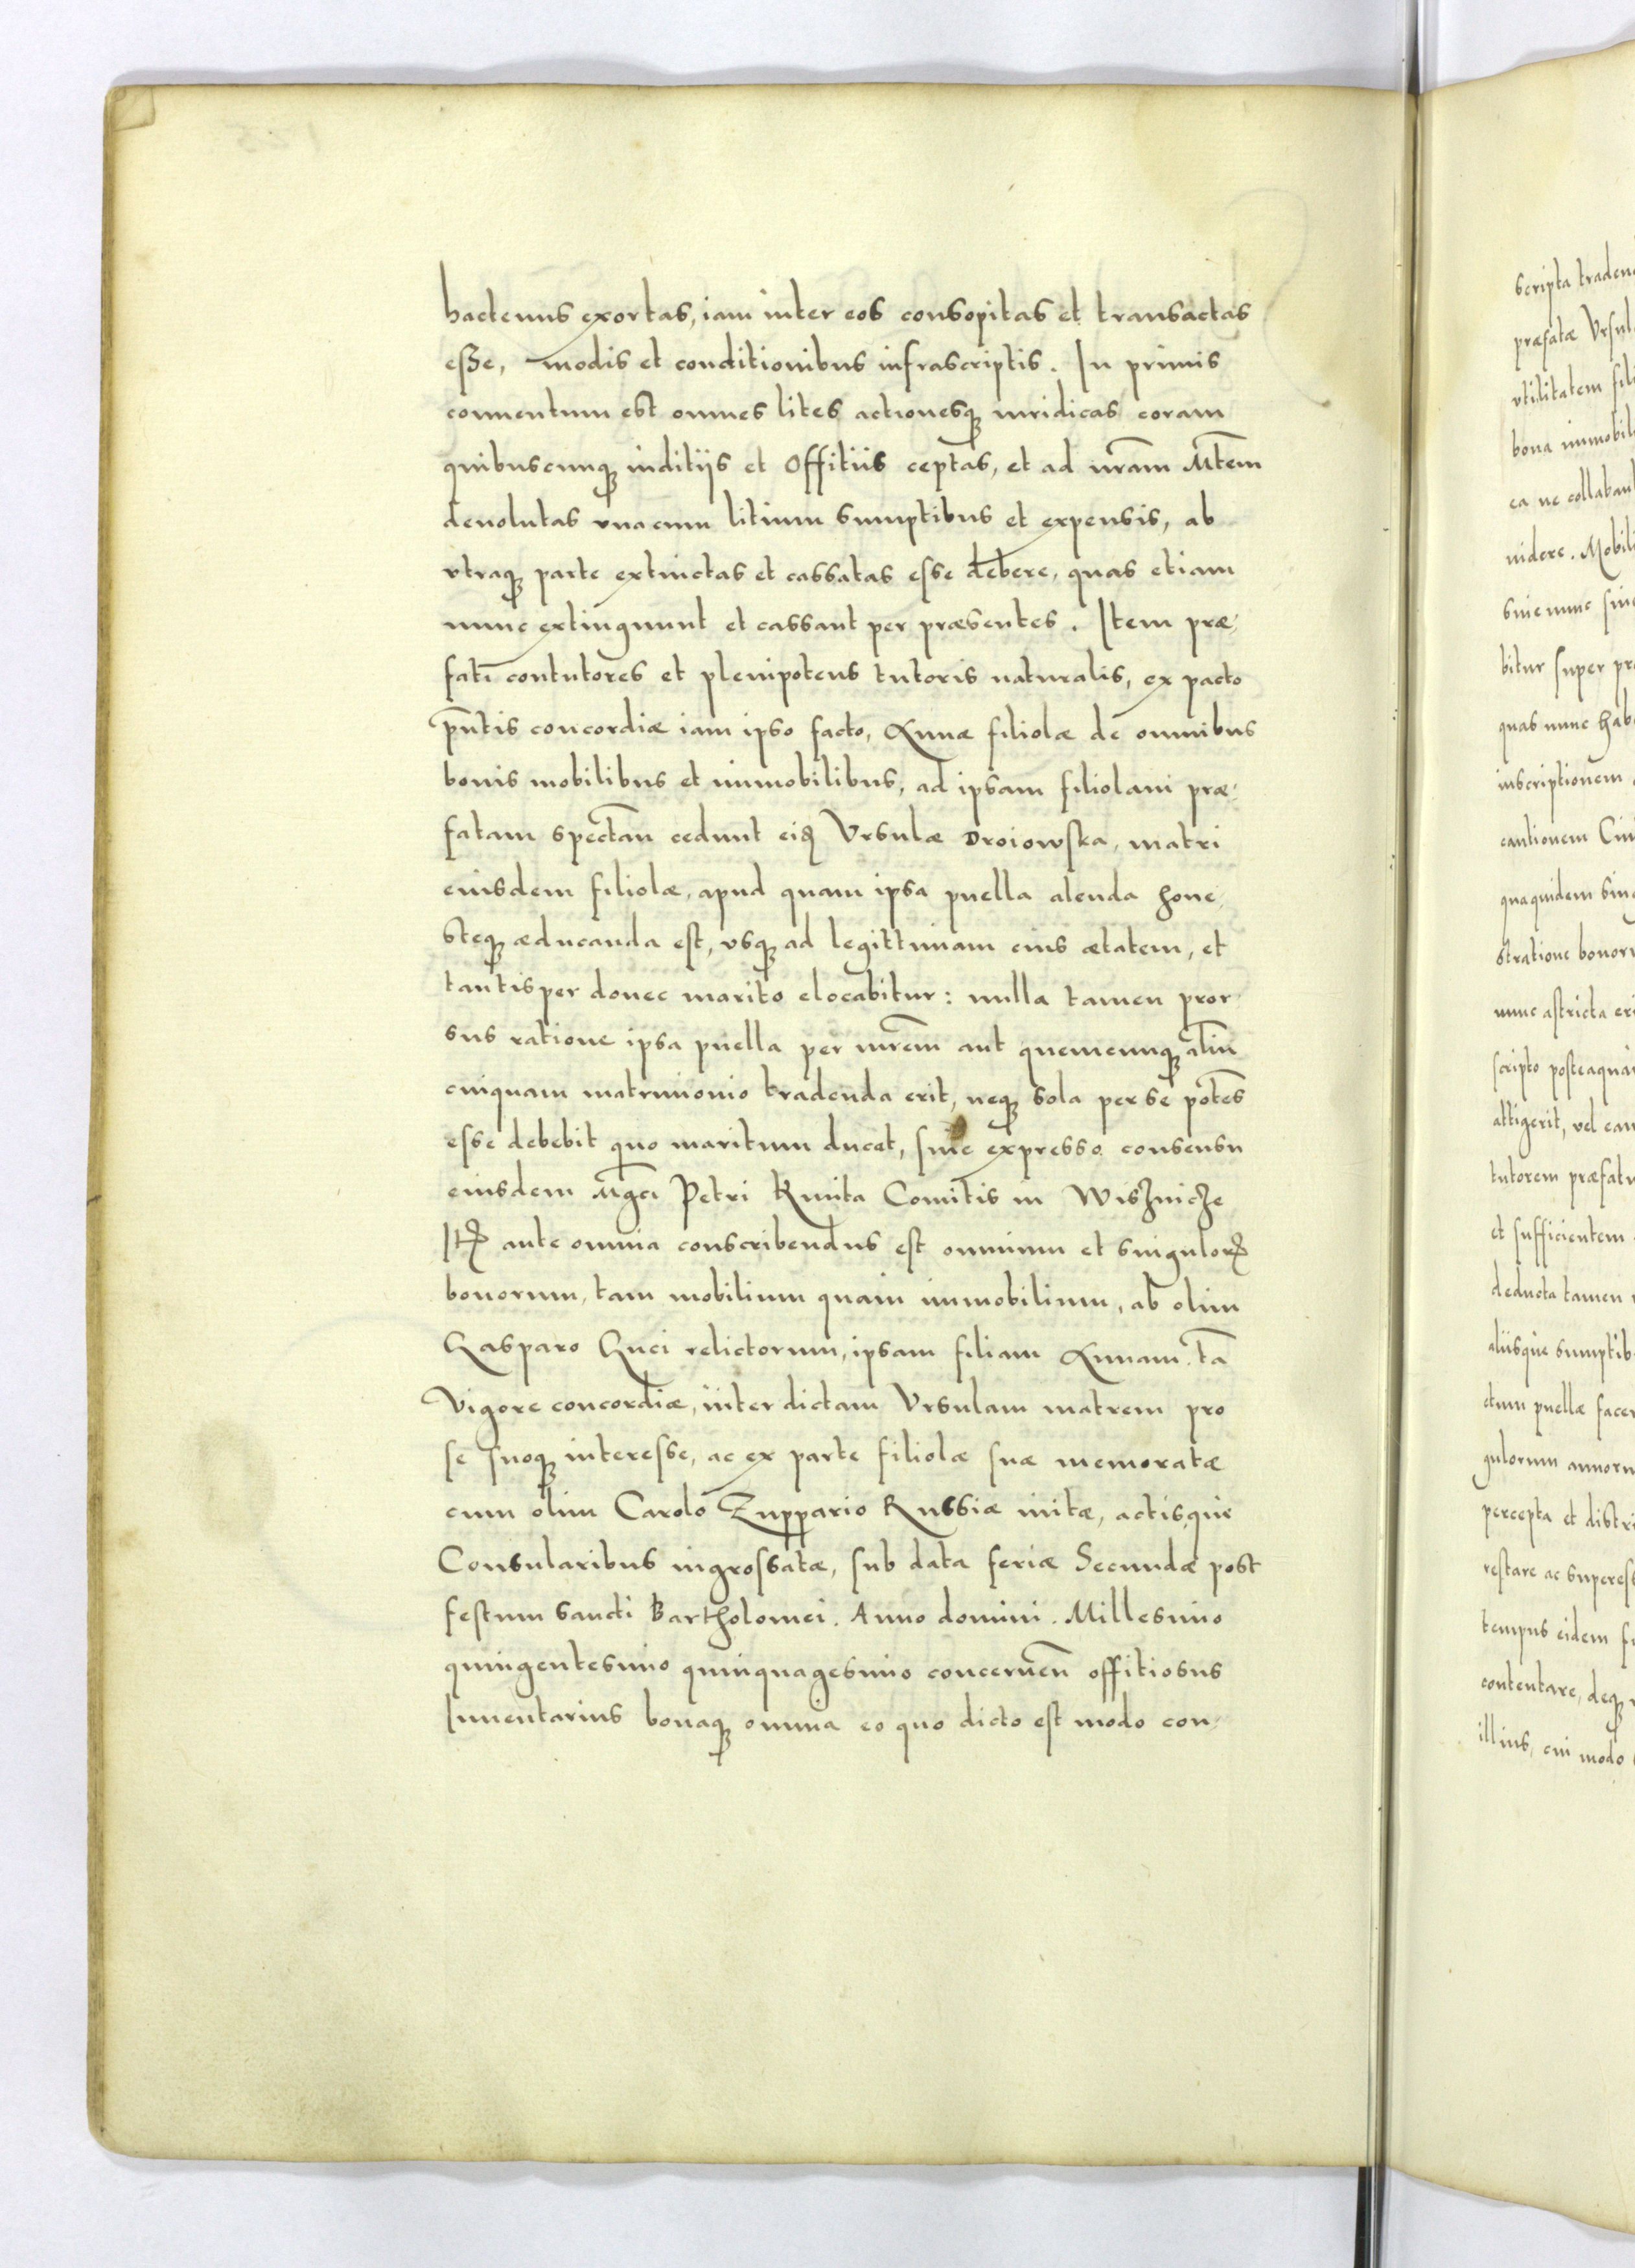 hactenus exortas, iam inter eos consopitas et transactas
esse, modis et conditionibus infrascriptis. In primis
conuentum est omnes lites actionesq; iuridicas coram
quibuscunq; iuditijs et Offitiis ceptas, et ad nr̃am Mtẽm
deuolutas vna cum litium sumptibus et expensis, ab
vtraq; parte extinctas et cassatas esse debere, quas etiam
nunc extinguunt et cassant per præsentes. Item præ-
fati contutores et plenipotens tutoris naturalis, ex pacto
pñtis concordiæ iam ipso facto, Annæ filiolæ de omnibus
bonis mobilibus et immobilibus, ad ipsam filiolam præ-
fatam spectañ cedunt eid Vrsulæ Droiowska, matri
eiusdem filiolæ, apud quam ipsa puella alenda hone-
steq; æducanda est, vsq; ad legittimam eius ætatem, et
tantisper donec marito elocabitur: nulla tamen pror-
sus ratione ipsa puella per mr̃em aut quemcunq; aliũ
cuiquam matrimonio tradenda erit, neq; sola per se potẽs
esse debebit quo maritum ducat, sine expresso consensu
eiusdem Mgci Petri Kmita Comitis in Wisznicze
Itẽ ante omnia conscribendus est omnium et singulorꝝ
bonorum, tam mobilium quam immobilium, ab olim
Gasparo Guci relictorum, ipsam filiam Annam. tã
Vigore concordiæ, inter dictam Vrsulam matrem pro
se suoq; interesse, ac ex parte filiolæ suæ memoratæ
cum olim Carolo Zuppario Russiæ initæ, actisque
Consularibus ingrossatæ, sub data feriæ Secundæ post
festum sancti Bartholomei. Anno domini. Millesimo
quingentesimo quinquagesimo concerneñ offitiosus
Inuentarius bonaq; omnia eo quo dicto est modo con-
scripta
præfatæ
vtilitatem
bona
ea ne
uidere.
siue nunc
bitur super
quas nunc
inscriptionem
cautionem
quaquidem
stratione
nunc astricta
scripto posteaquam
attigerit, vel
tutorem
et sufficientem
deducta tamen
aliisque
puellæ
gulorum
percepta et
restare ac
tempus eidem
contentare, deq;
illius, cui modo